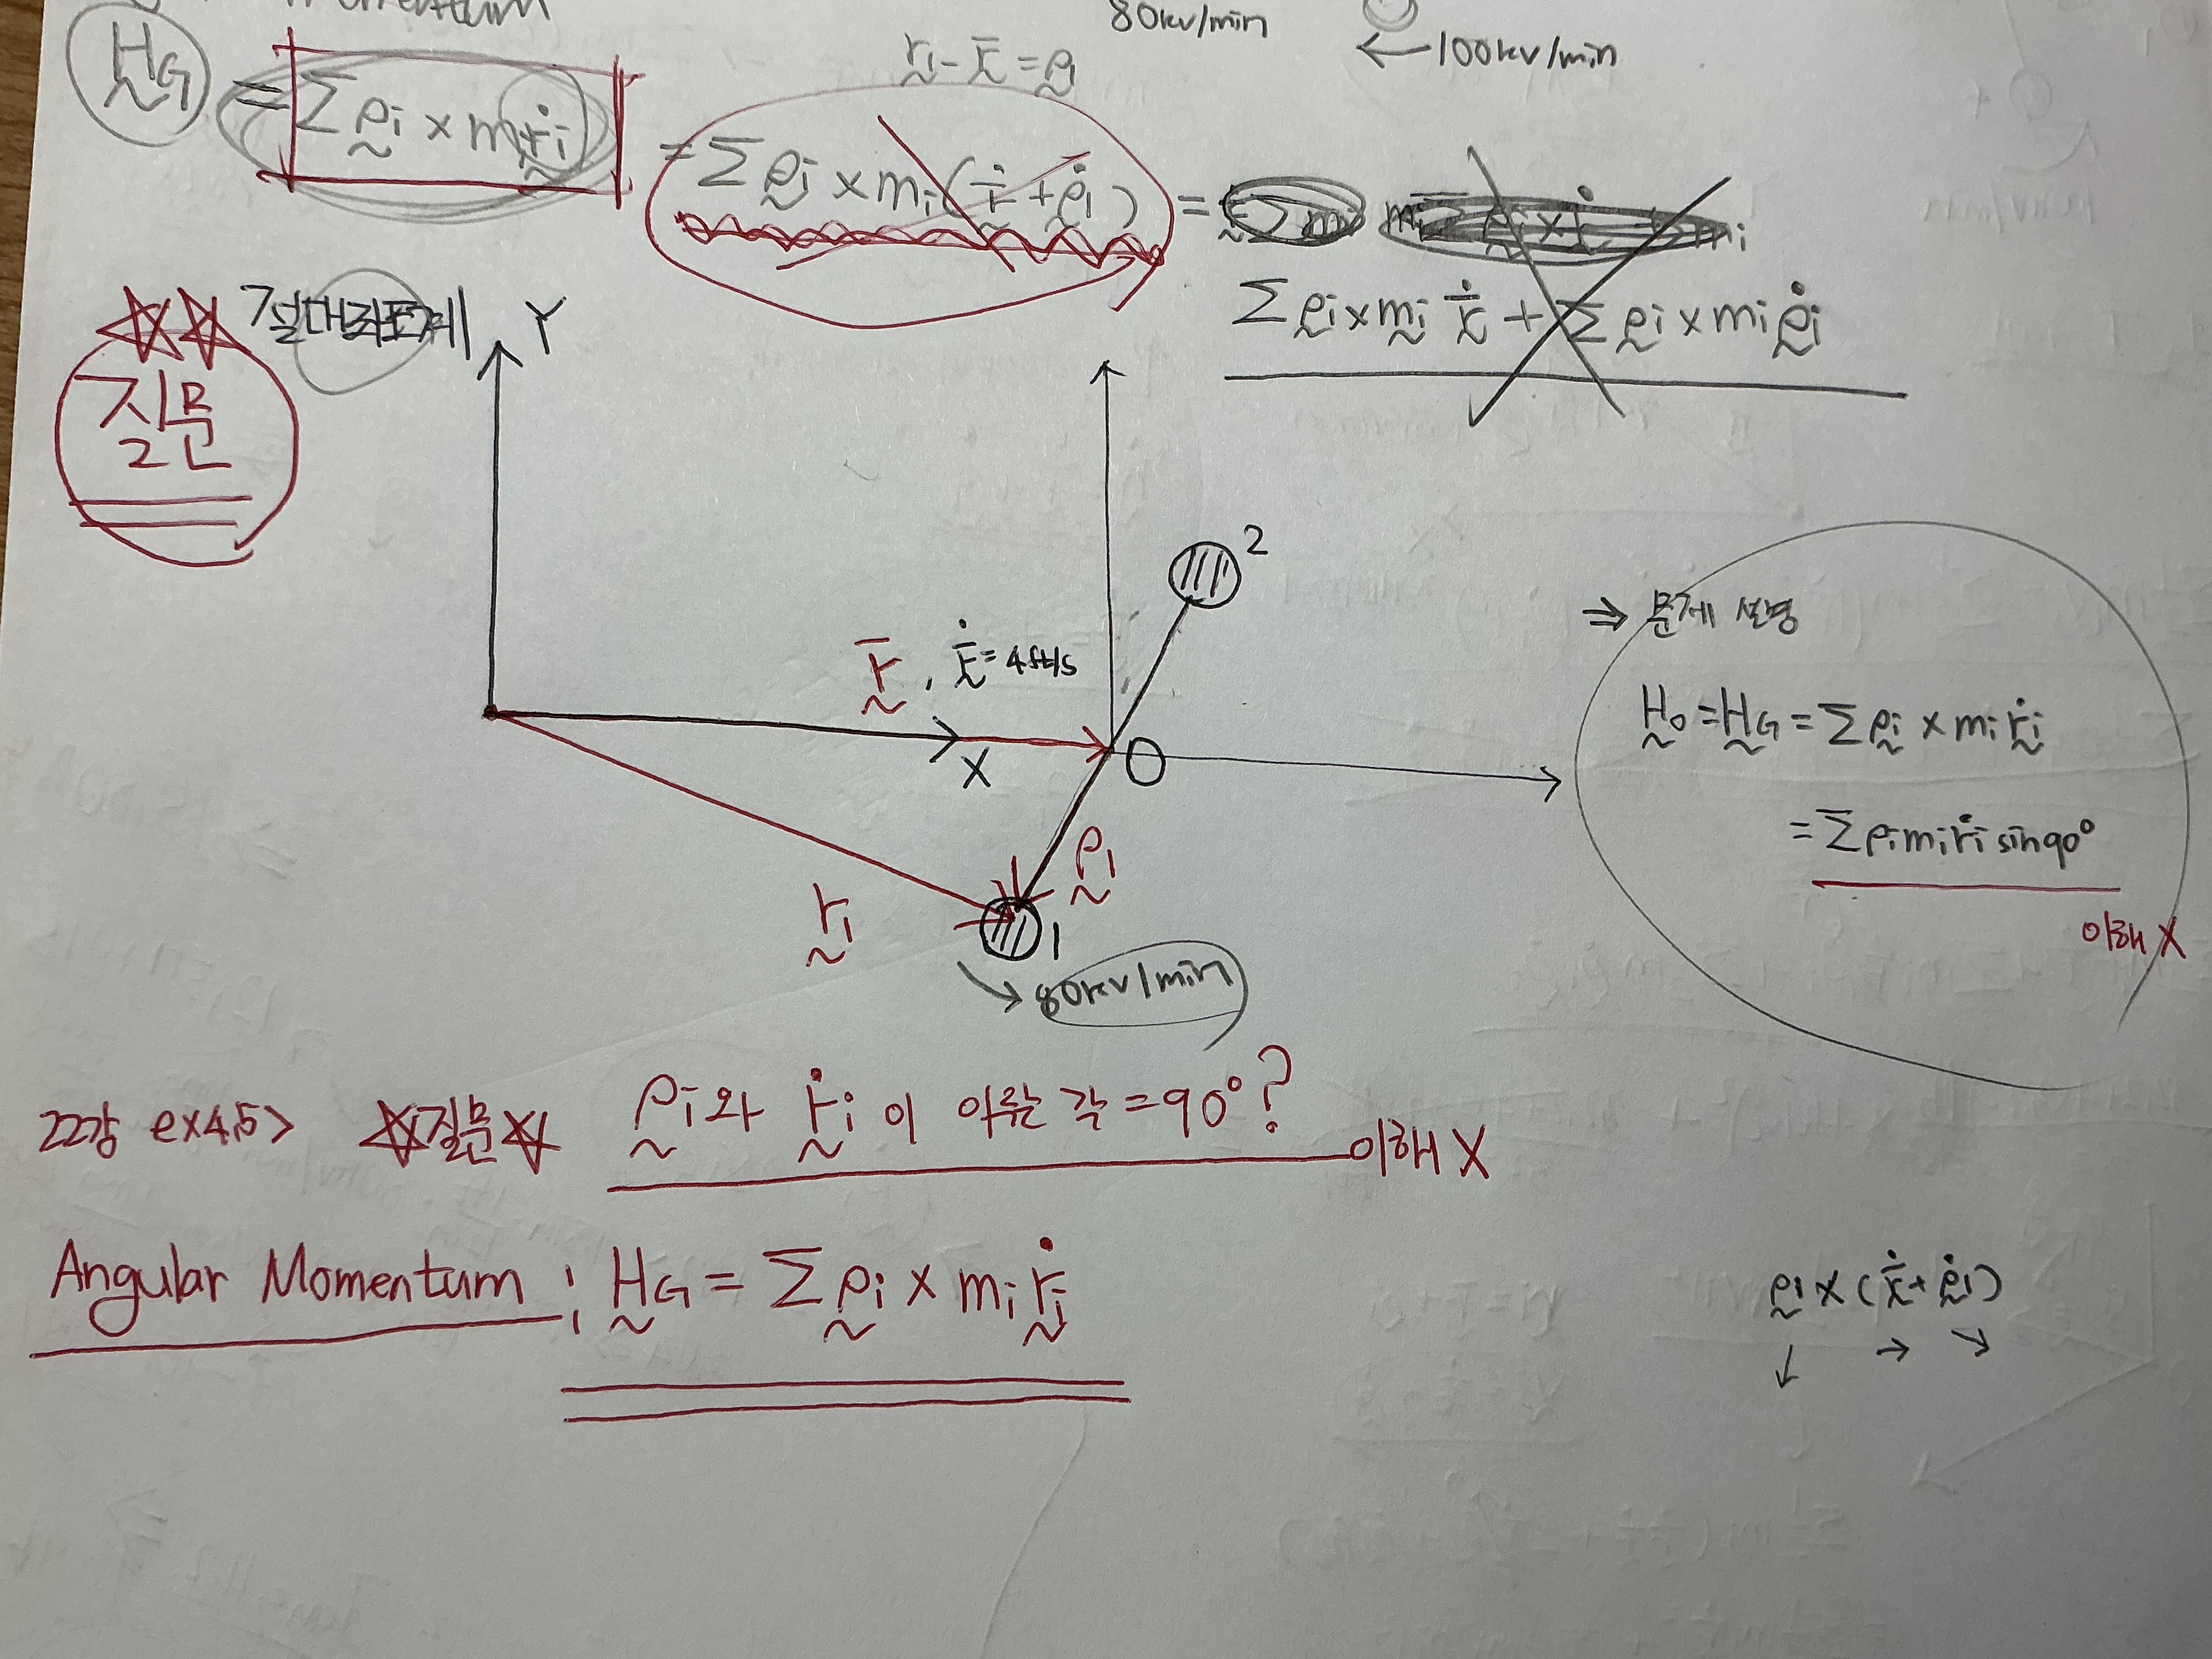 80rev/min
r̰i - r̰̄ = ρ̰i
← 100rev/min
H̰G = Σ ρ̰i × mi ṙ̰i = Σ ρ̰i × mi (ṙ̰̄ + ρ̰̇i) =
Σ ρ̰i × m̰i ṙ̰̄ + Σ ρ̰i × mi ρ̰̇i
절대좌표계
Y
질문
2
r̰̄ , ṙ̰̄ = 4ft/s
X
O
r̰i
ρ̰i
1
→ 80rev/min
⇒ 문제 설명
H̰o = H̰G = Σ ρ̰i × mi ṙ̰i
= Σ ρi mi ṙi sin90°
이해 X
22강 ex4.5> ☆질문☆ ρ̰i와 ṙ̰i 이 이루는 각 = 90°?
이해 X
Angular Momentum ; H̰G = Σ ρ̰i × mi ṙ̰i
ρ̰i × (ṙ̰̄ + ρ̰̇i)
↓ → ↘